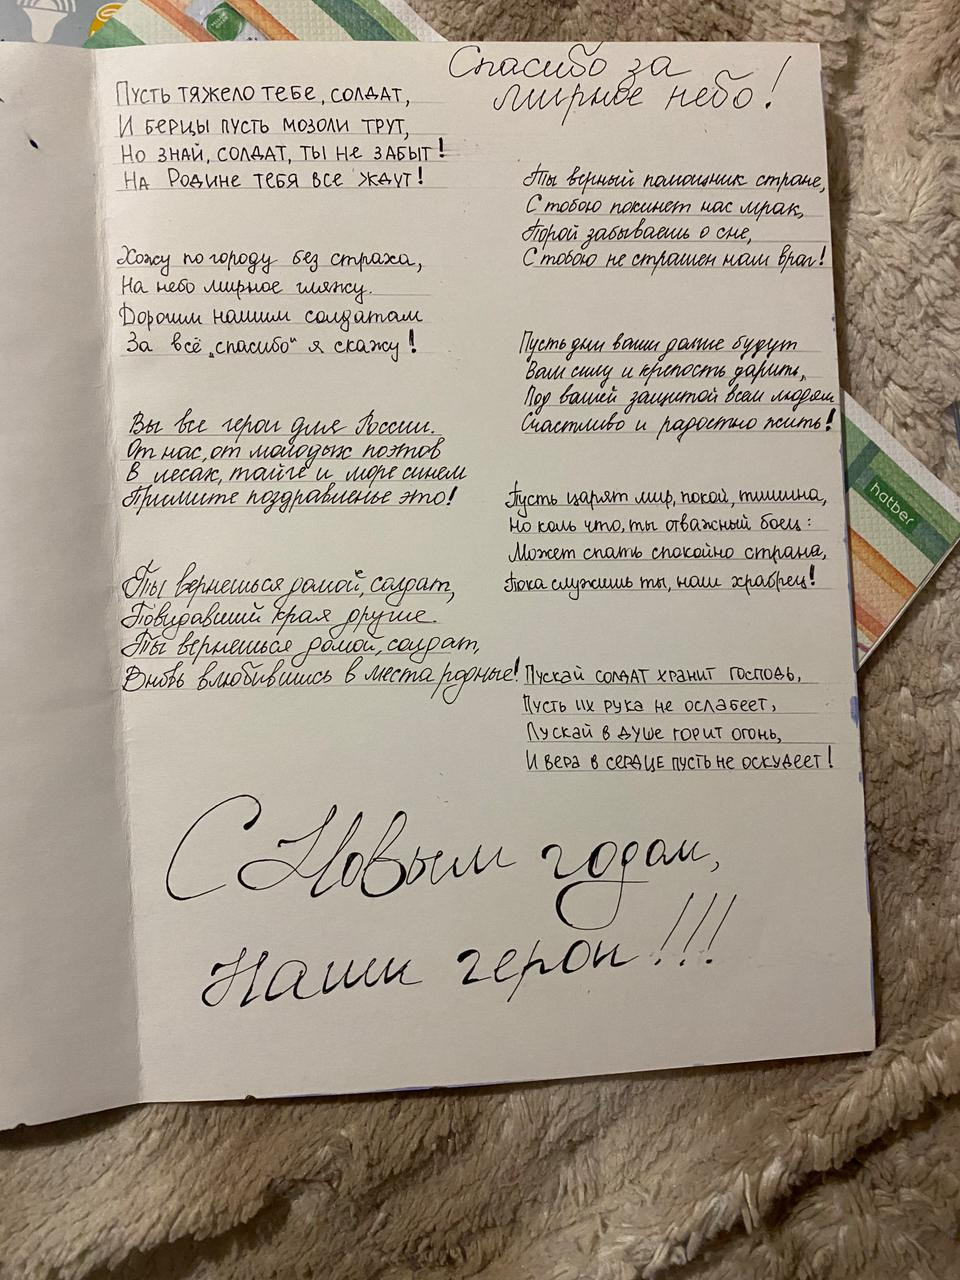 Спасибо за
мирное небо!
Пусть тяжело тебе, солдат,
И берцы пусть мозоли трут,
Но знай, солдат, ты не забыт!
На Родине тебя все ждут!
Хожу по городу без страха,
На небо мирное гляжу.
Дорогим нашим солдатам
За всё „спасибо“ я скажу!
Вы все герои для России.
От нас, от молодых поэтов
В лесах, тайге и море синем
Примите поздравленье это!
Ты вернешься домой, солдат,
Повидавший края другие.
Ты вернешься домой, солдат,
Вновь влюбившись в места родные!
Ты верный помощник стране,
С тобою покинет нас мрак,
Порой забываешь о сне,
С тобою не страшен нам враг!
Пусть дни ваши долгие будут
Вам силу и крепость дарить,
Под вашей защитой всем людям
Счастливо и радостно жить!
Пусть царят мир, покой, тишина,
Но коль что, ты отважный боец:
Может спать спокойно страна,
Пока служишь ты, наш храбрец!
Пускай солдат хранит Господь,
Пусть их рука не ослабеет,
Пускай в душе горит огонь,
И вера в сердце пусть не оскудеет!
С Новым годом,
Наши герои!!!
hatber